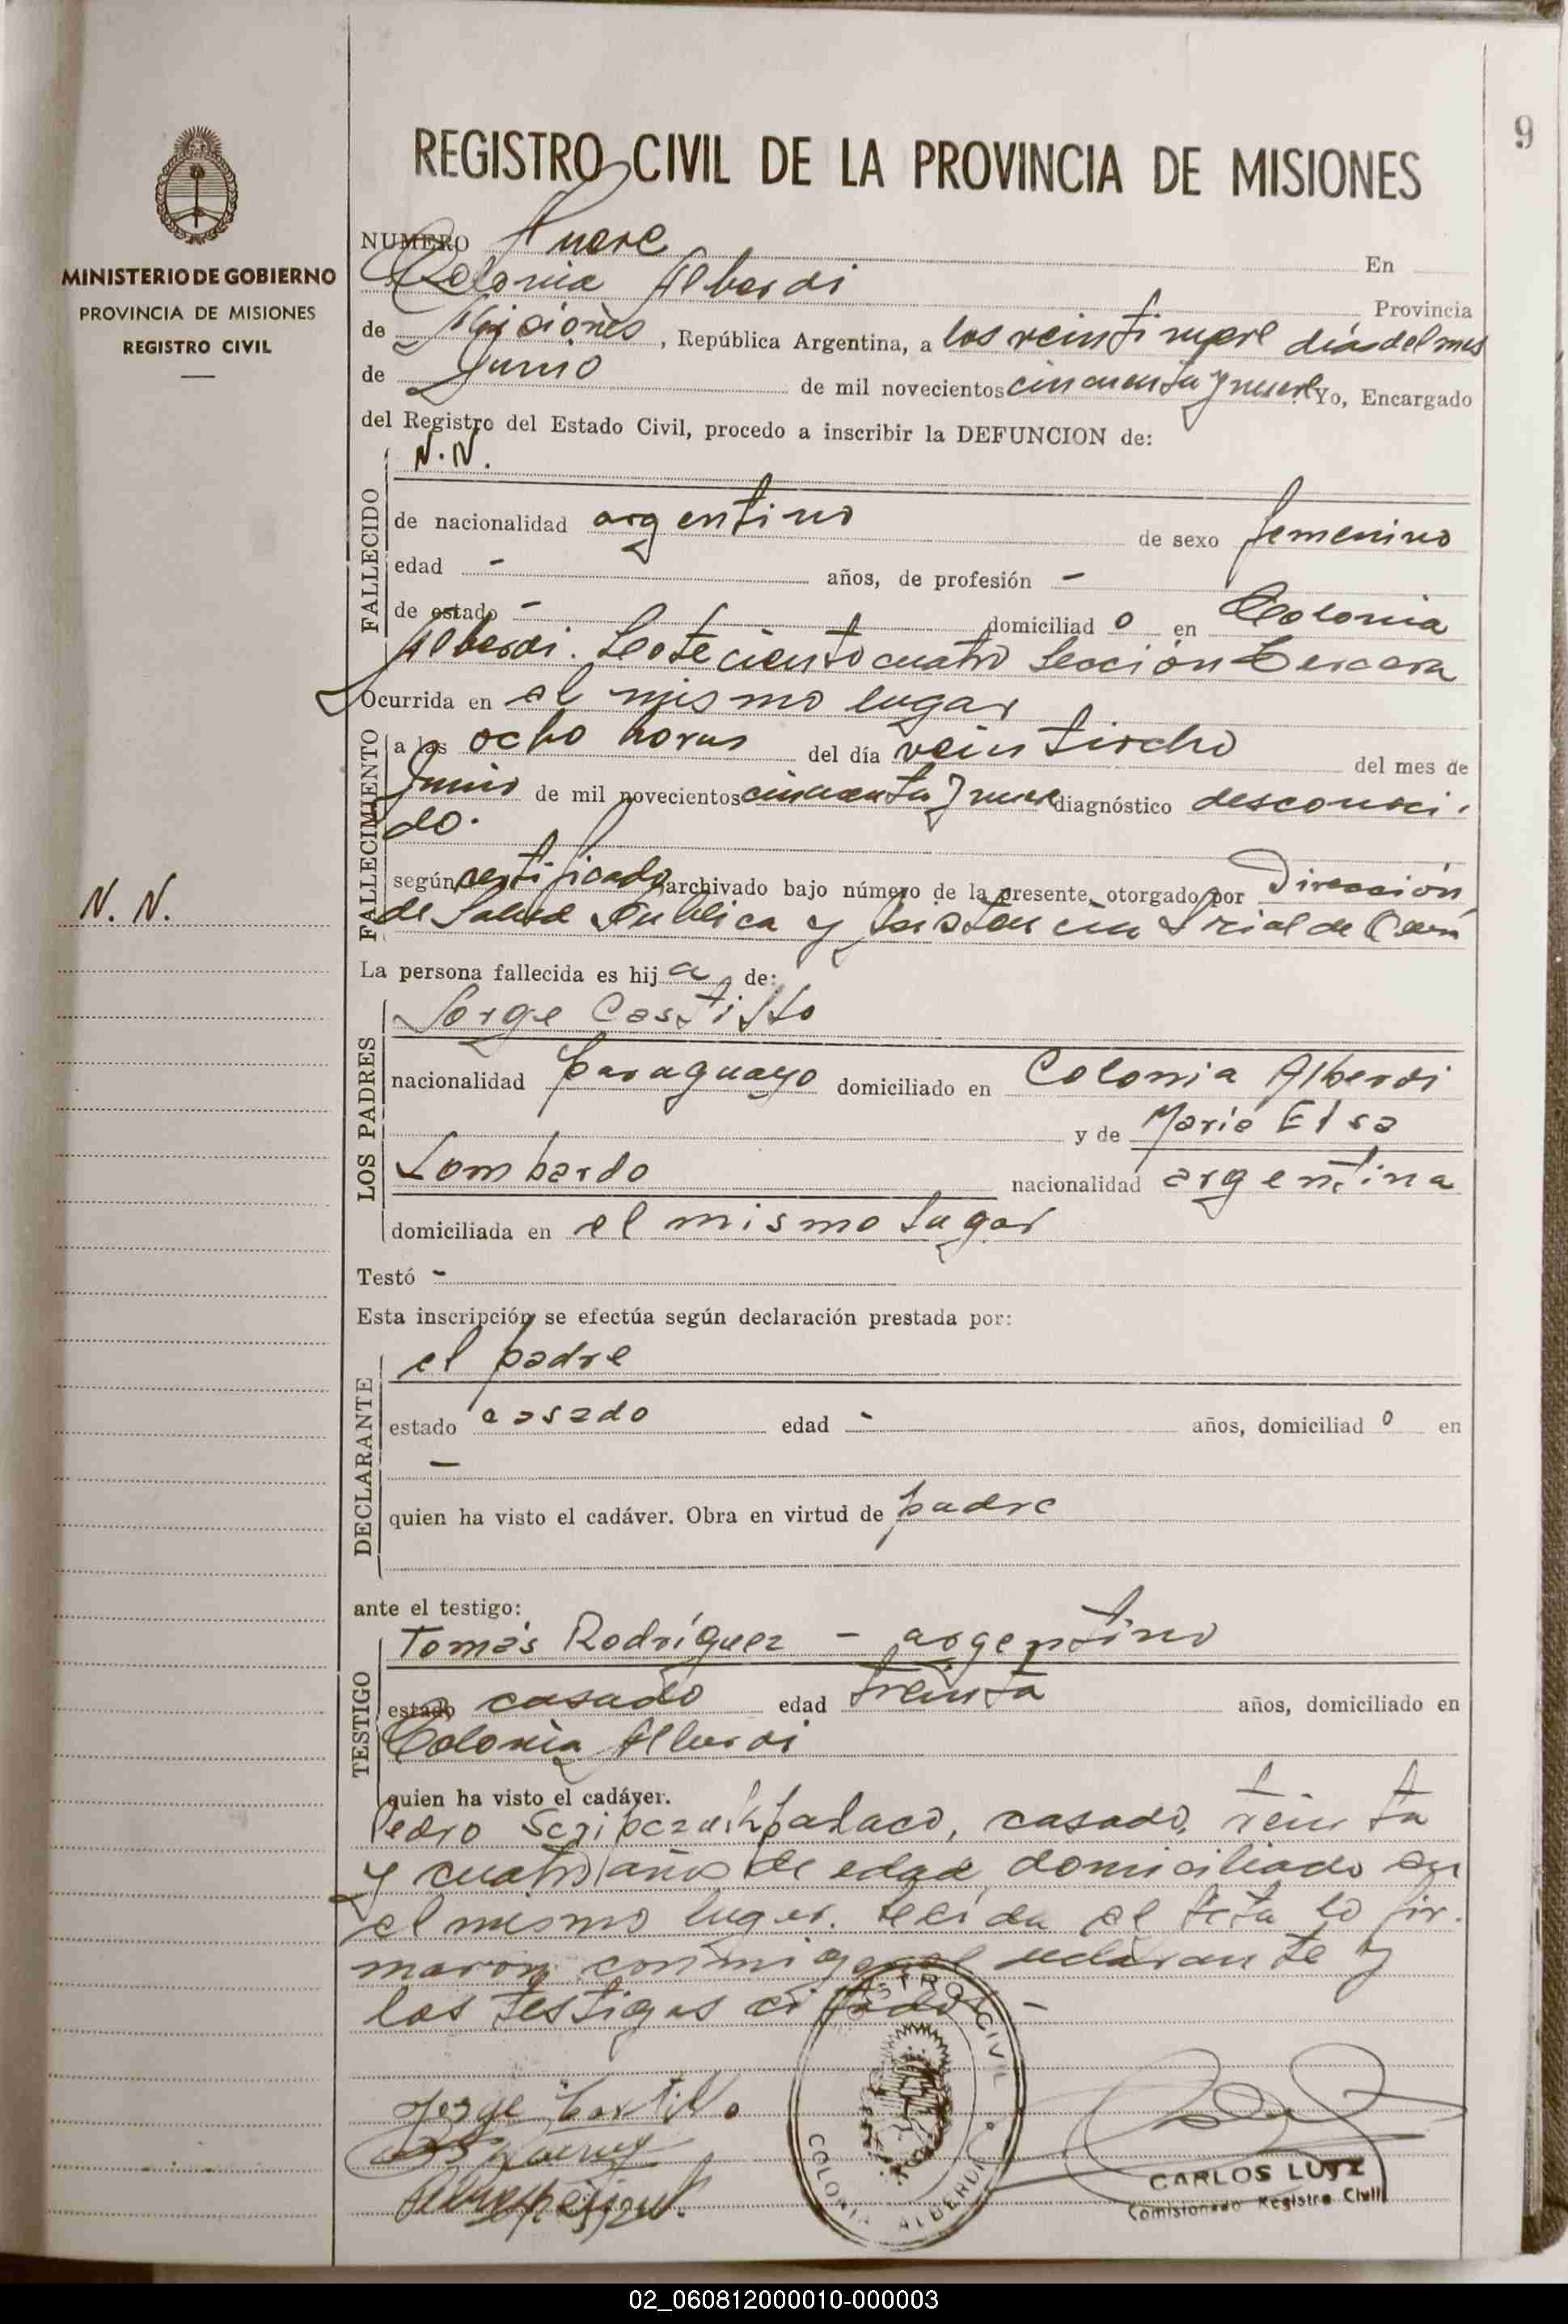 9
REGISTRO CIVIL DE LA PROVINCIA DE MISIONES
MINISTERIO DE GOBIERNO
PROVINCIA DE MISIONES
REGISTRO CIVIL
NUMERO Nueve En
Colonia Alberdi Provincia
de Misiones, República Argentina, a los veintinueve días del mes
de Junio de mil novecientos cincuenta y nueve Yo, Encargado
del Registro del Estado Civil, procedo a inscribir la DEFUNCION de:
FALLECIDO
N.N.
de nacionalidad argentino de sexo femenino
edad - años, de profesión -
de estado - domiciliad o en Colonia
Alberdi. Lote ciento cuatro Sección Tercera
Ocurrida en el mismo lugar
FALLECIMIENTO
a las ocho horas del día veintiocho del mes de
Junio de mil novecientos cincuenta y nueve diagnóstico desconoci-
do.
según certificado archivado bajo número de la presente, otorgado por Dirección
de Salud Publica y Asistencia Social de
N. N.
La persona fallecida es hij a de:
LOS PADRES
Jorge Castillo
nacionalidad paraguayo domiciliado en Colonia Alberdi
y de Maria Elsa
Lombardo nacionalidad argentina
domiciliada en el mismo lugar
Testó -
Esta inscripción se efectúa según declaración prestada por:
DECLARANTE
el padre
estado casado edad - años, domiciliad o en
-
quien ha visto el cadáver. Obra en virtud de padre
ante el testigo:
TESTIGO
Tomás Rodríguez - argentino
estado casado edad treinta años, domiciliado en
Colonia Alberdi
quien ha visto el cadáver.
Pedro polaco, casado, treinta
y cuatro años de edad, domiciliado en
el mismo lugar. Leida el acta lo fir-
maron conmigo el declarante y
los testigos citados -
Jorge Castillo
REGISTRO CIVIL
COLONIA ALBERDI
CARLOS LUTZ
Comisionado Registro Civil
02_060812000010-000003